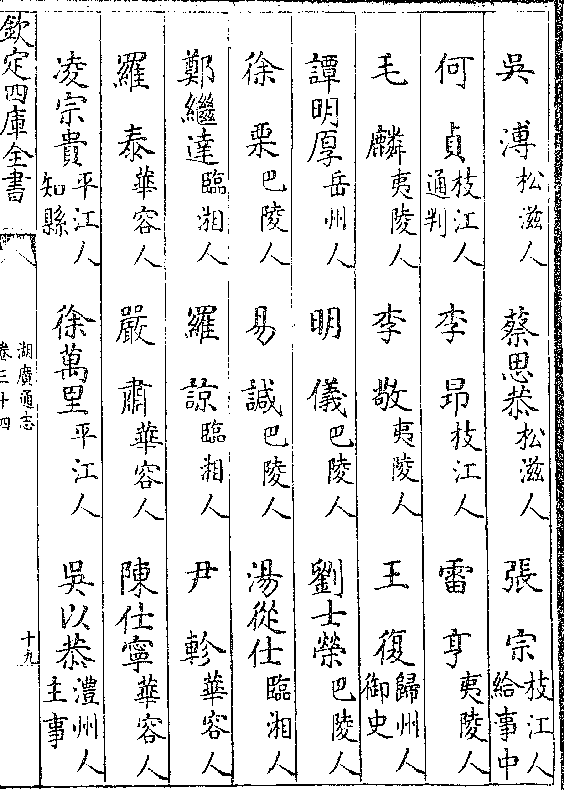 吳溥松滋人 蔡思恭松滋人 張宗枝江人給事中
何貞枝江人通判 李昂枝江人 雷亨夷陵人
毛麟夷陵人 李敬夷陵人 王復歸州人御史
譚明厚岳州人 明儀巴陵人 劉士榮巴陵人
徐栗巴陵人 易誠巴陵人 湯從仕臨湘人
鄭繼達臨湘人 羅諒臨湘人 尹軫華容人
羅泰華容人 嚴肅華容人 陳仕寧華容人
凌宗貴平江人知縣 徐萬里平江人 吳以恭澧州人主事
欽定四庫全書 湖廣通志卷三十四 十九